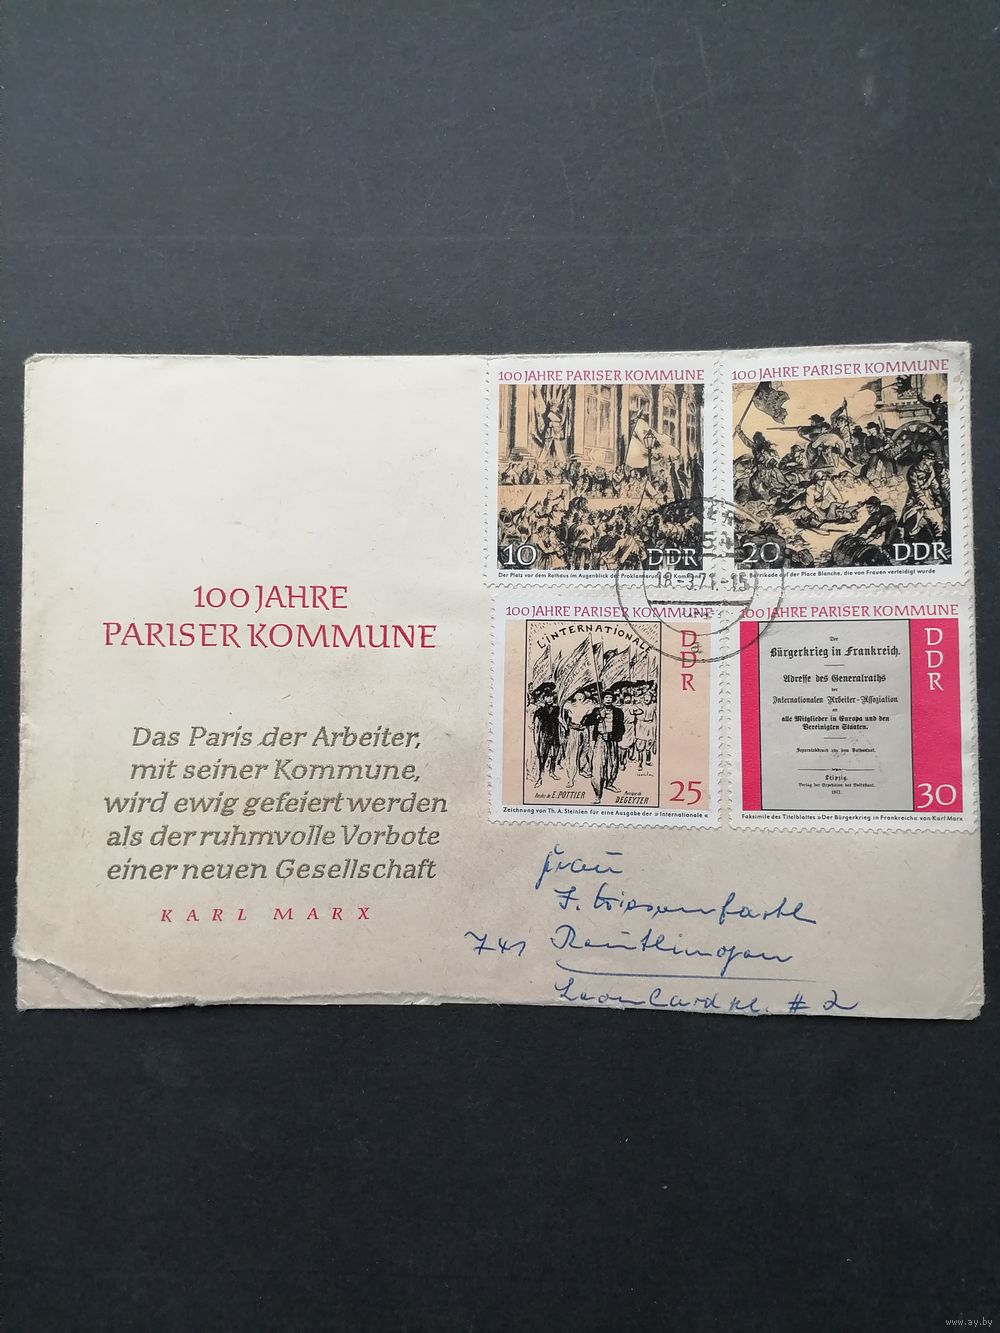 100 JAHRE
PARISER KOMMUNE
Das Paris der Arbeiter,
mit seiner Kommune,
wird ewig gefeiert werden
als der ruhmvolle Vorbote
einer neuen Gesellschaft
KARL MARX
100 JAHRE PARISER KOMMUNE
10 DDR
Der Platz vor dem Rathaus im Augenblick der Proklamierung der Kommune
100 JAHRE PARISER KOMMUNE
20 DDR
Barrikade auf der Place Blanche, die von Frauen verteidigt wurde
18.-3.71.-15
100 JAHRE PARISER KOMMUNE
L'INTERNATIONALE
DDR
Paroles de E. POTTIER
Musique de
DEGEYTER
25
Zeichnung von Th. A. Steinlen für eine Ausgabe der »Internationale«
100 JAHRE PARISER KOMMUNE
DDR
Der
Bürgerkrieg in Frankreich.
Adresse des Generalraths
der
Internationalen Arbeiter-Assoziation
an
alle Mitglieder in Europa und den
Vereinigten Staaten.
Separatabdruck aus dem Volksstaat.
Leipzig.
Verlag der Expedition des Volksstaat.
1871.
30
Faksimile des Titelblattes »Der Bürgerkrieg in Frankreich« von Karl Marx
Frau
J.
741 Reutlingen
# 2
www.ay.by